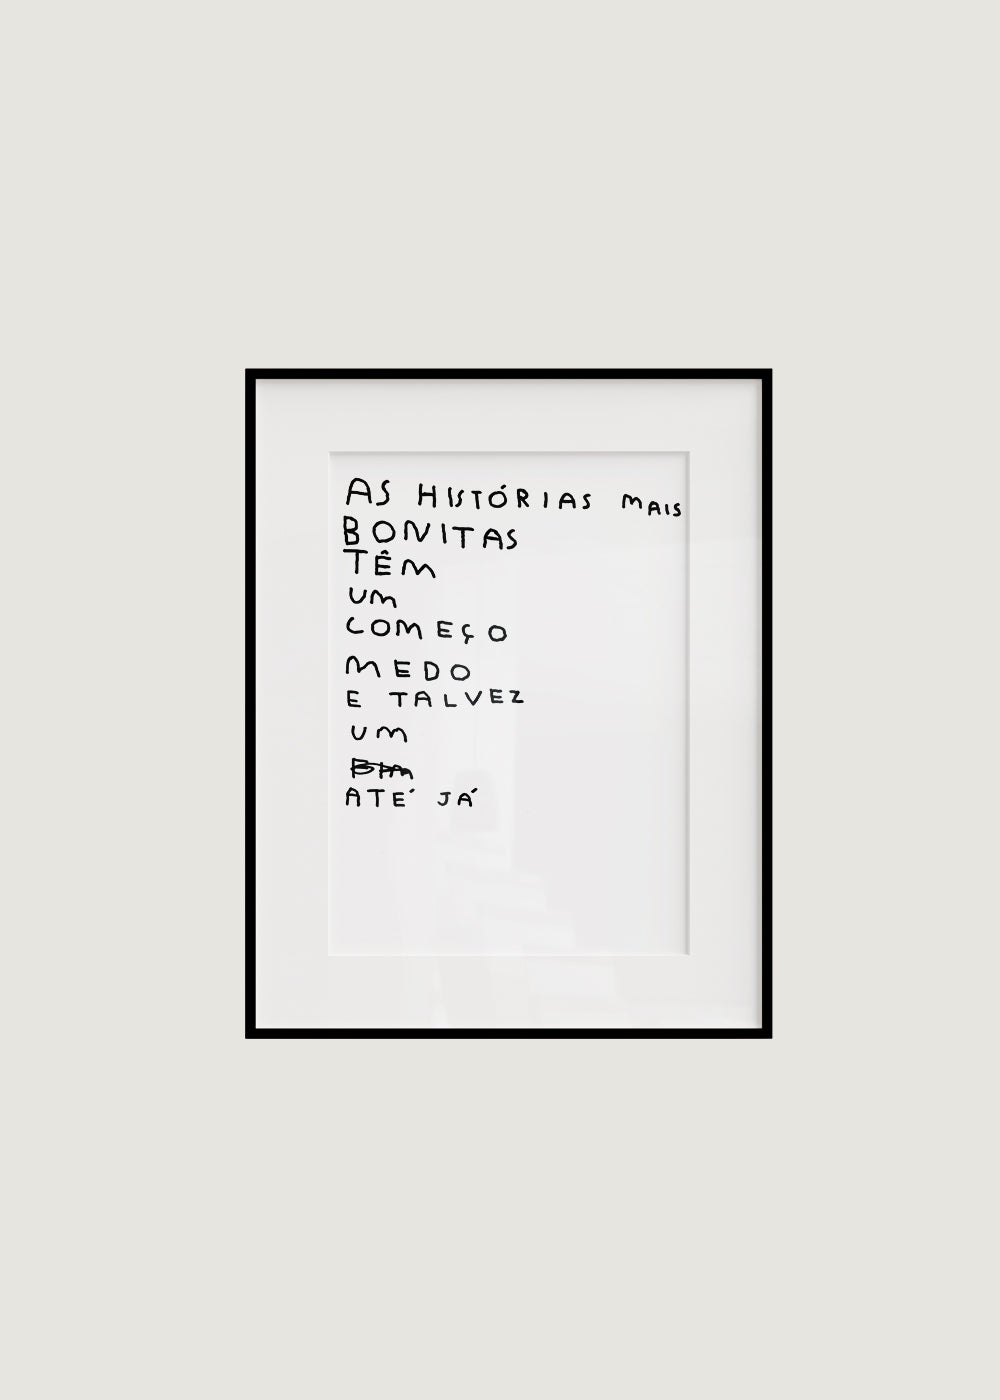 AS HISTÓRIAS MAIS
BONITAS
TÊM
UM
COMEÇO
MEDO
E TALVEZ
UM
ATÉ JÁ